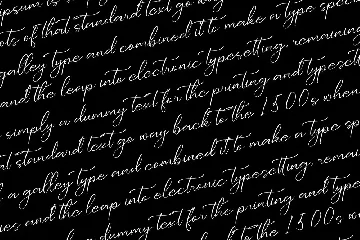 ipsum is
ots of that standard text go way
galley type and combined it to make a type speci
and the leap into electronic typesetting, remaining
simply a dummy text for the printing and typesett
al standard text go way back to the 1500s when
a galley type and combined it to make a type sp
ies and the leap into electronic typesetting, remai
dummy text for the printing and typ
back to the 1500s w